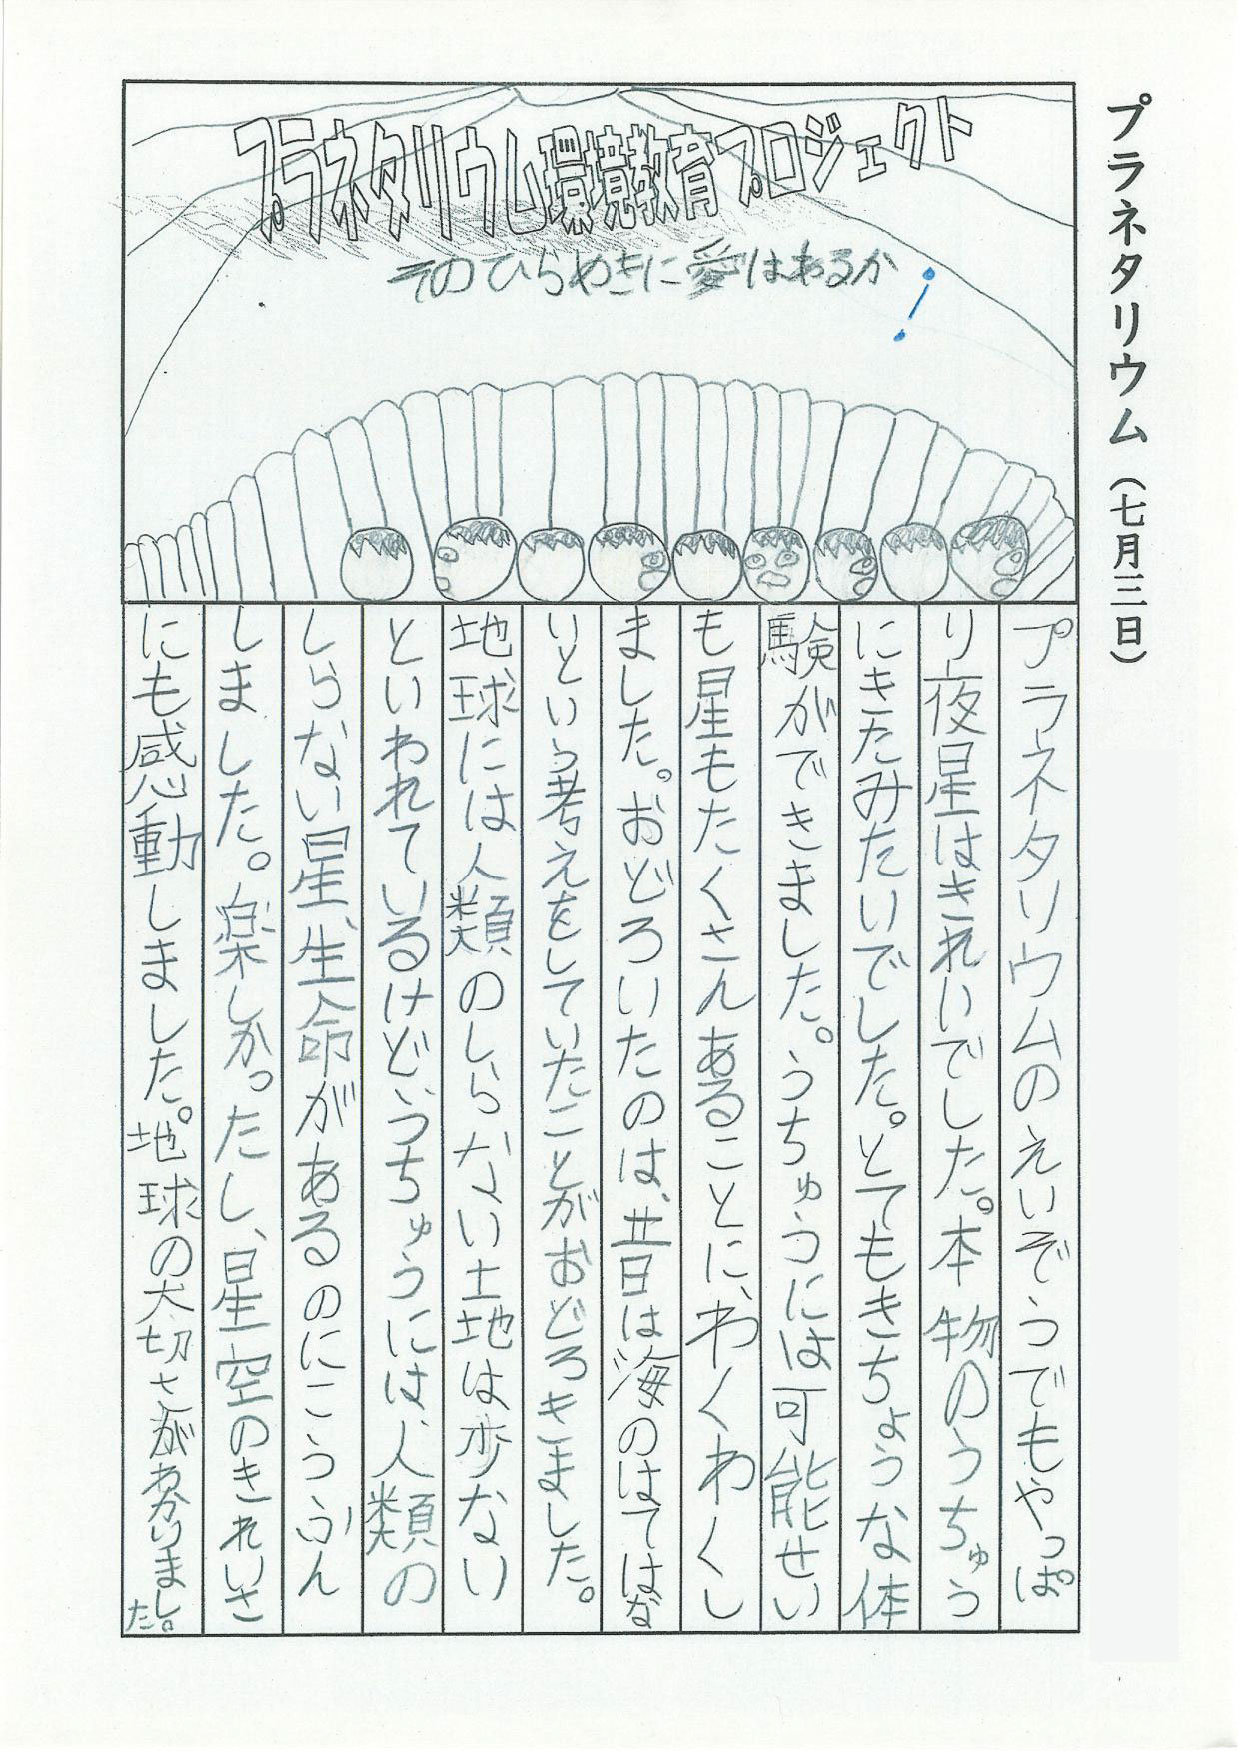 プラネタリウム（七月三日）
プラネタリウム環境教育プロジェクト
そのひらめきに愛はあるか
プラネタリウムのえいぞうでもやっぱ
り夜星はきれいでした。本物のうちゅう
にきたみたいでした。とてもきちょうな体
験ができました。うちゅうには可能せい
も星もたくさんあることに、わくわくし
ました。おどろいたのは、昔は海のはてはな
いという考えをしていたことがおどろきました。
地球には人類のしらない土地は歩ない
といわれているけどうちゅうには、人類の
しらない星、生命があるのにこうふん
しました。楽しかったし、星空のきれいさ
にも感動しました。地球の大切さがわかりました。